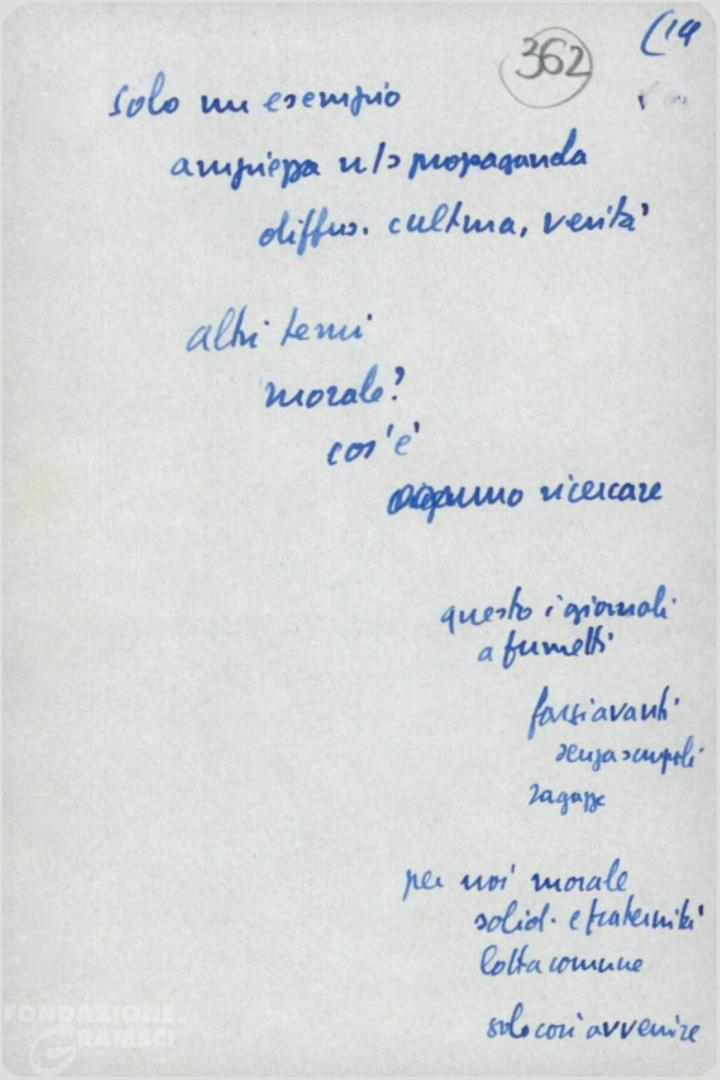 (19
362
solo un esempio
ampiezza n/s propaganda
diffus. cultura, verità
altri temi
morale?
cos'è
ognuno ricercare
questo i giornali
a fumetti
farsi avanti
senza scrupoli
ragazze
per noi morale
solid. e fraternità
lotta comune
solo così avvenire
FONDAZIONE
GRAMSCI